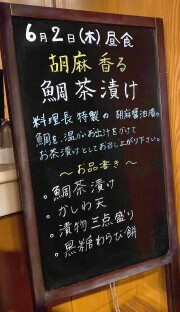 6月2日(木)昼食
胡麻香る
鯛茶漬け
料理長特製の胡麻醤油漬の
鯛を、温かいお出汁をかけて
お茶漬けとしてお召し上がり下さい。
～お品書き～
・鯛茶漬け
・かしわ天
・漬物三点盛り
・黒糖わらび餅